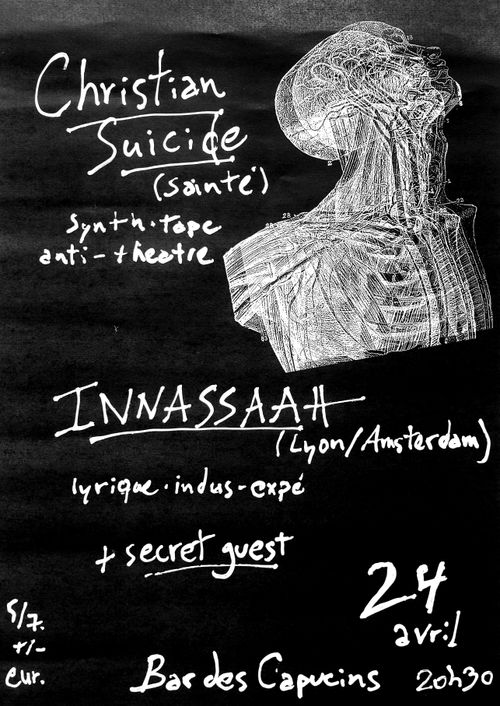 Christian
Suicide
(sainté)
synth.tape
anti-theatre
INNASSAAH
(Lyon/Amsterdam)
lyrique.indus-expé
+ secret guest
24
avril
5/7.
+/-
eur.
Bar des Capucins 20h30